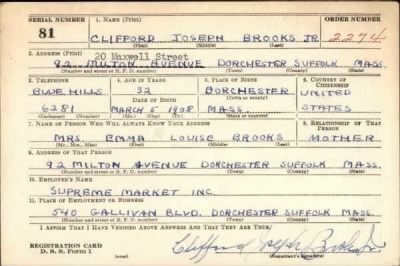 SERIAL NUMBER 1. NAME (Print) ORDER NUMBER
81 CLIFFORD JOSEPH BROOKS JR. 2274
(First) (Middle) (Last)
2. ADDRESS (Print) 20 Maxwell Street
92 MILTON AVENUE DORCHESTER SUFFOLK MASS.
(Number and street or R. F. D. number) (Town) (County) (State)
3. TELEPHONE 4. AGE IN YEARS 5. PLACE OF BIRTH 6. COUNTRY OF CITIZENSHIP
BLUE HILLS 32 DORCHESTER UNITED
DATE OF BIRTH (Town or county)
6281 MARCH 5 1908 MASS. STATES
(Mo.) (Day) (Yr.) (State or country)
7. NAME OF PERSON WHO WILL ALWAYS KNOW YOUR ADDRESS 8. RELATIONSHIP OF THAT PERSON
MRS. EMMA LOUISE BROOKS MOTHER
(Mr., Mrs., Miss) (First) (Middle) (Last)
9. ADDRESS OF THAT PERSON
92 MILTON AVENUE DORCHESTER SUFFOLK MASS.
(Number and street or R. F. D. number) (Town) (County) (State)
10. EMPLOYER'S NAME
SUPREME MARKET INC.
11. PLACE OF EMPLOYMENT OR BUSINESS
540 GALLIVAN BLVD. DORCHESTER SUFFOLK MASS.
(Number and street or R. F. D. number) (Town) (County) (State)
I AFFIRM THAT I HAVE VERIFIED ABOVE ANSWERS AND THAT THEY ARE TRUE.
REGISTRATION CARD
D. S. S. Form 1 Clifford Joseph Brooks Jr
(Registrant's signature)